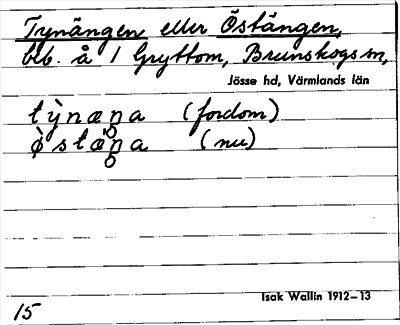 Tynängen eller Östängen,
beb. å 1 Gryttom, Brunskogs sn,
Jösse hd, Värmlands län
tỳnæŋa (fordom)
ø̀stæŋa (nu)
Isak Wallin 1912–13
15